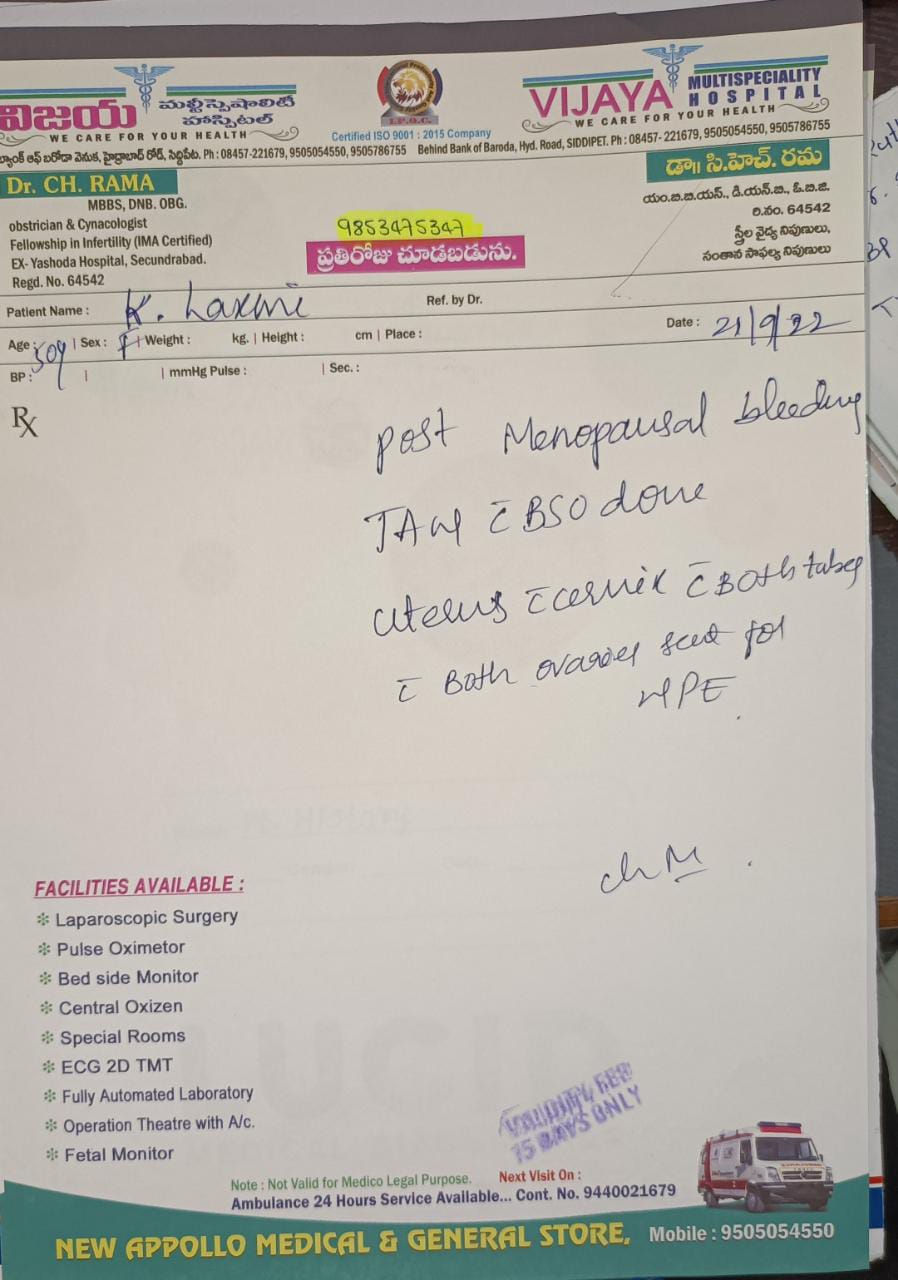 విజయ మల్టీస్పెషాలిటీ హాస్పిటల్
WE CARE FOR YOUR HEALTH
I.P.Q.C.
Certified ISO 9001 : 2015 Company
VIJAYA MULTISPECIALITY HOSPITAL
WE CARE FOR YOUR HEALTH
బ్యాంక్ ఆఫ్ బరోడా వెనుక, హైద్రాబాద్ రోడ్, సిద్దిపేట. Ph : 08457-221679, 9505054550, 9505786755 Behind Bank of Baroda, Hyd. Road, SIDDIPET. Ph : 08457- 221679, 9505054550, 9505786755
Dr. CH. RAMA
MBBS, DNB. OBG.
obstrician & Cynacologist
Fellowship in Infertility (IMA Certified)
EX- Yashoda Hospital, Secundrabad.
Regd. No. 64542
9853475347
ప్రతిరోజు చూడబడును.
డా॥ సి.హెచ్. రమ
యం.బి.బి.యస్., డి.యన్.బి., ఓ.బి.జి.
రి.నం. 64542
స్త్రీల వైద్య నిపుణులు,
సంతాన సాఫల్య నిపుణులు
Patient Name : K. Laxmi Ref. by Dr.
Age : 50y | Sex : F | Weight : kg. | Height : cm | Place : Date : 21/9/22
BP : | | mmHg Pulse : | Sec. :
Rx
post Menopausal bleeding
TAH c̄ BSO done
uterus c̄ cervix c̄ Both tubes
c̄ Both ovaries sent for
HPE.
FACILITIES AVAILABLE :
Laparoscopic Surgery
Pulse Oximetor
Bed side Monitor
Central Oxizen
Special Rooms
ECG 2D TMT
Fully Automated Laboratory
Operation Theatre with A/c.
Fetal Monitor
VALIDITY FEE
15 DAYS ONLY
Note : Not Valid for Medico Legal Purpose. Next Visit On :
Ambulance 24 Hours Service Available... Cont. No. 9440021679
NEW APPOLLO MEDICAL & GENERAL STORE, Mobile : 9505054550